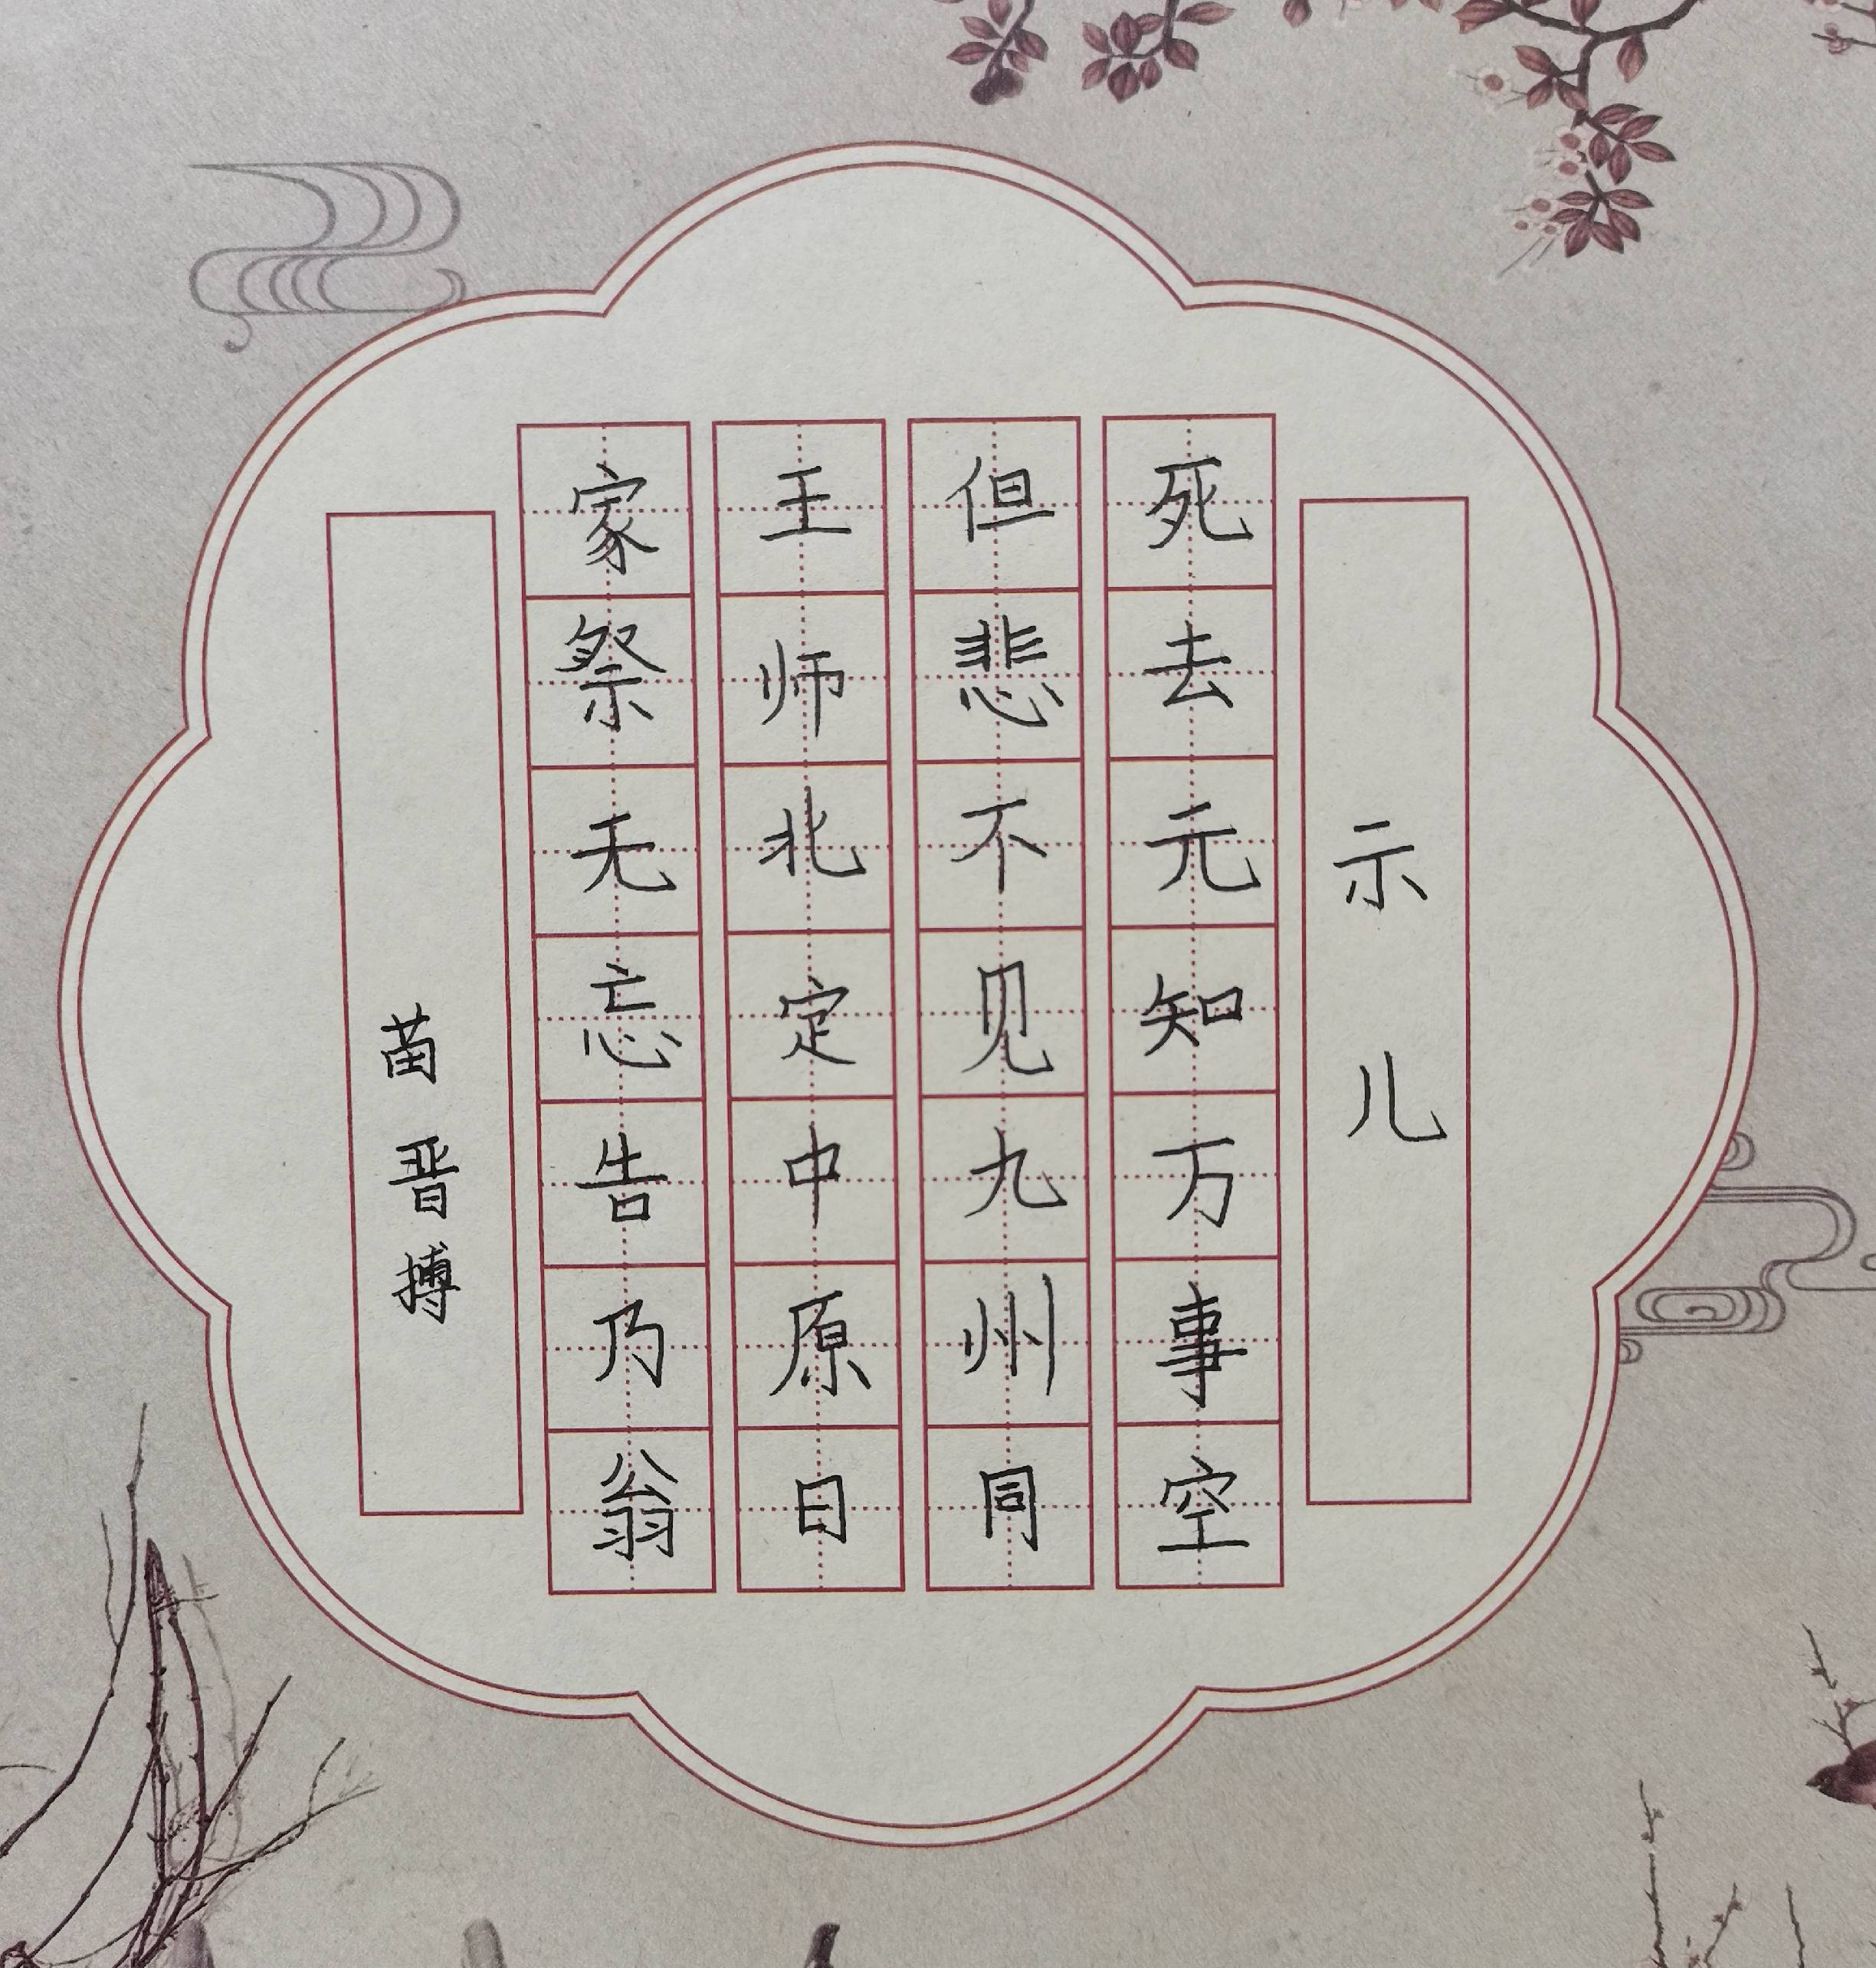 示儿
死去元知万事空
但悲不见九州同
王师北定中原日
家祭无忘告乃翁
苗晋搏